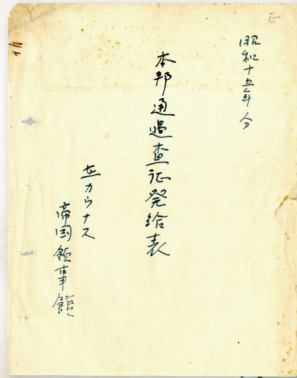 昭和十五年分
本邦通過査証発給表
在カウナス
帝国領事館